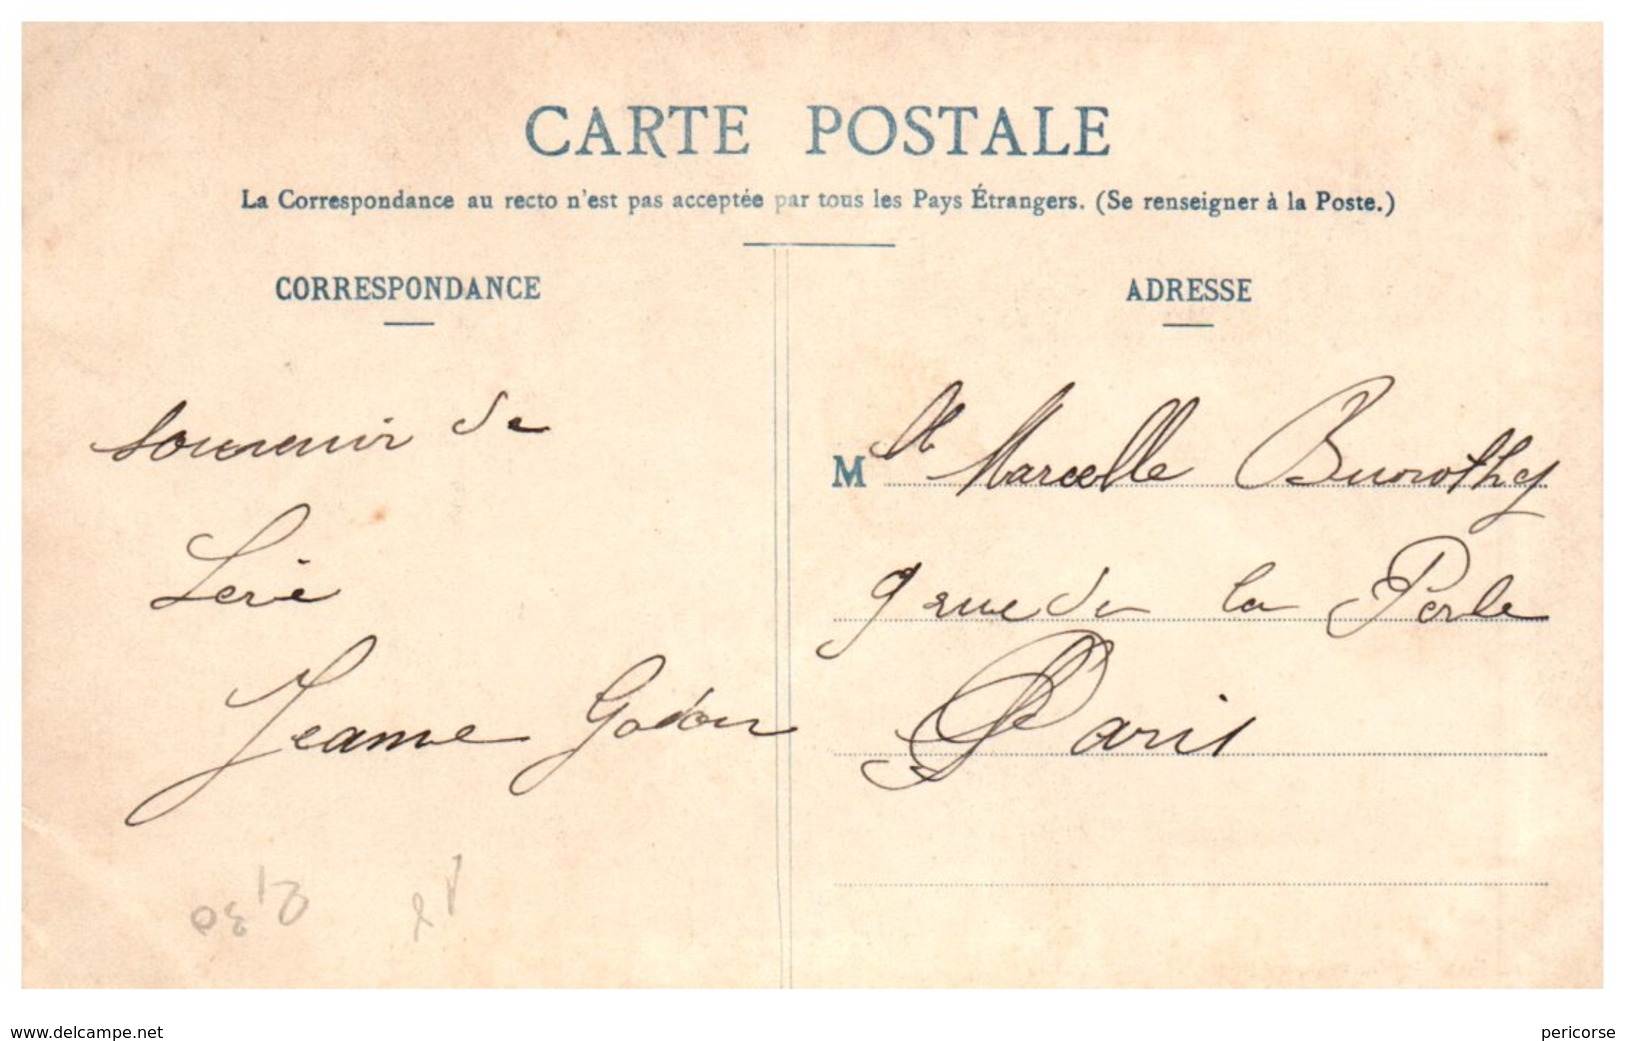 CARTE POSTALE
La Correspondance au recto n'est pas acceptée par tous les Pays Étrangers. (Se renseigner à la Poste.)
CORRESPONDANCE
souvenir de
Leré
Jeanne Godon
ADRESSE
Mlle Marcelle
9 rue de la Perle
Paris
2,30
www.delcampe.net
pericorse